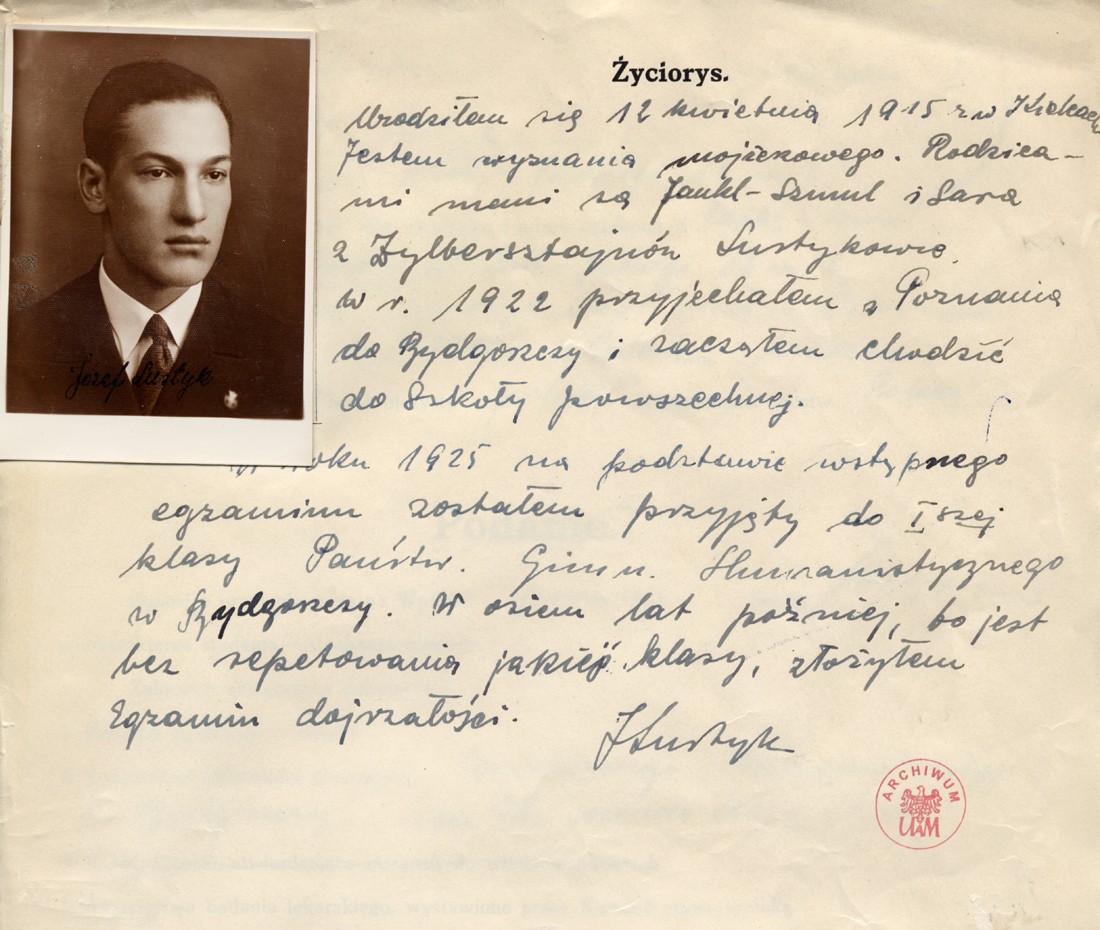 Życiorys.
Urodziłem się 12 kwietnia 1915 r w
Jestem wyznania mojżeszowego. Rodzica-
mi moimi są Jankl-Szmul i Sara
z Zylbersztajnów Lustykowie.
W r. 1922 przyjechałem z Poznania
do Bydgoszczy i zacząłem chodzić
do Szkoły powszechnej.
Jozef Lustyk
W roku 1925 na podstawie wstępnego
egzaminu zostałem przyjęty do I szej
klasy Państw. Gimn. Humanistycznego
w Bydgoszczy. W osiem lat później, to jest
bez repetowania jakiejś klasy, złożyłem
Egzamin dojrzałości.
JLustyk
ARCHIWUM
UAM